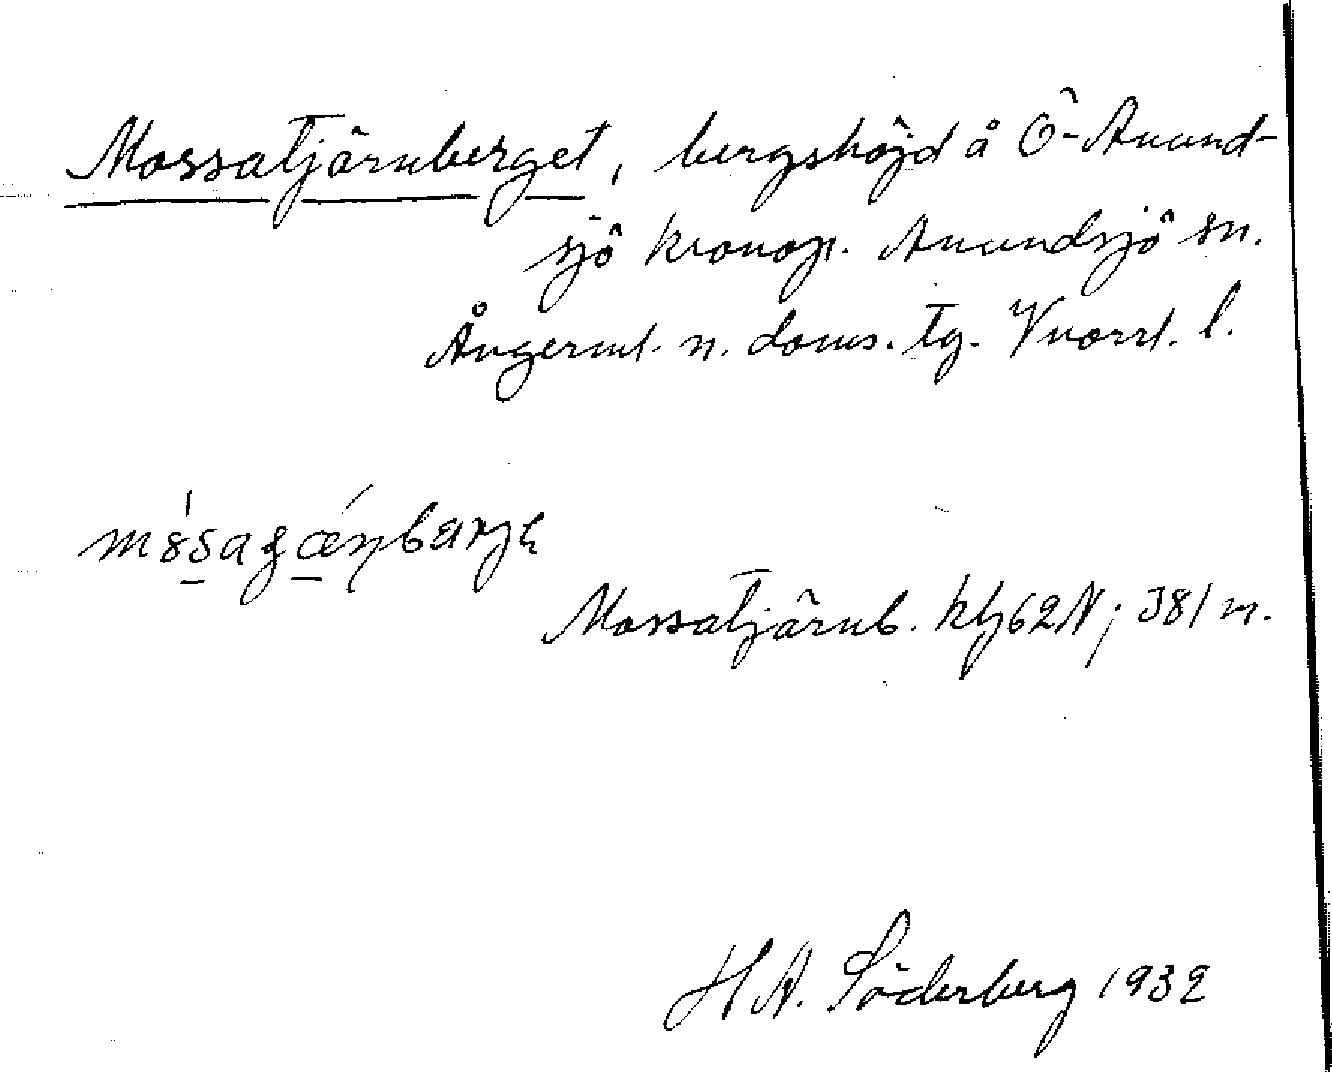 Mossatjärnberget, bergshöjd å Ö-Anund-
sjö kronop. Anundsjö sn.
Ångerml. n. doms. tg. Vnorrl. l.
Mossatjärnb. kbl 62N; 381 m.
H A. Söderberg 1932